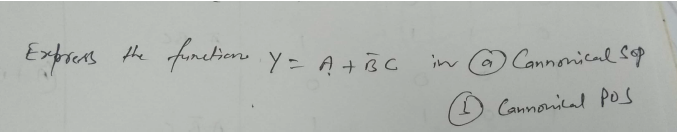 Express the function Y = A + B̄C in (a) Cannonical SOP
(b) Cannonical POS